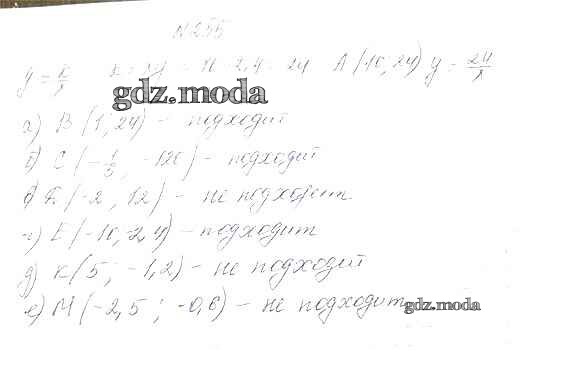 N 255
y = k/x k = xy = 10 · 2,4 = 24 A (10; 24) y = 24/x
gdz.moda
а) B (1; 24) - подходит
б) C (-1/5; -120) - подходит
в) D (-2, 12) - не подходит
г) E (-10, -2,4) - подходит
д) K (5; -1,2) - не подходит
е) M (-2,5; -0,6) - не подходит
gdz.moda